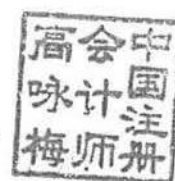 中国注册
会计师
高咏梅